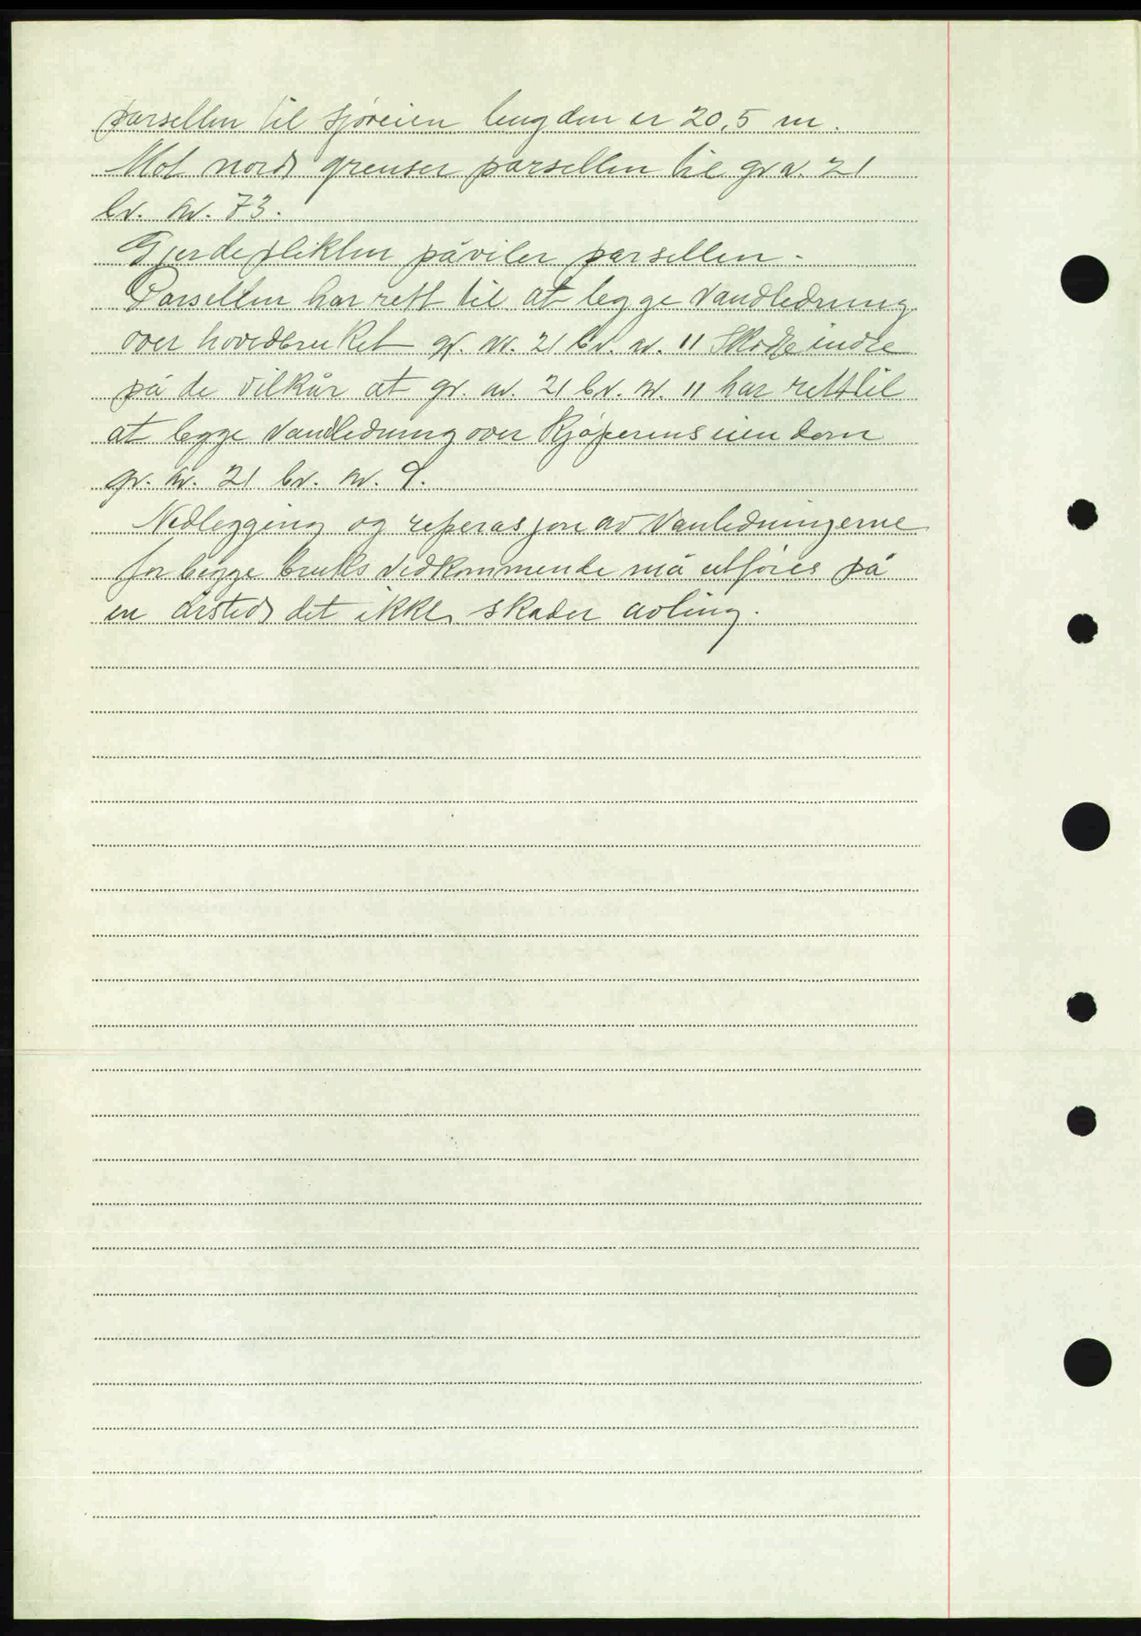 parsellen til sjøveien lengden er 20,5 m.
Mot nord grenser parsellen til gr. nr. 21
br. nr. 73.
Gjerdeplikten påviler parsellen.
Parsellen har rett til at legge vandledning
over hovedbruket gr. nr. 21 br. nr. 11 Skodje indre
på de vilkår at gr. nr. 21 br. nr. 11 har rett til
at legge vandledning over kjøperens eiendom
gr. nr. 21 br. nr. 9.
Nedlegging og reperasjon av vanledningerne
for begge bruks vedkommende må utføres på
en årstid det ikke skader avling.